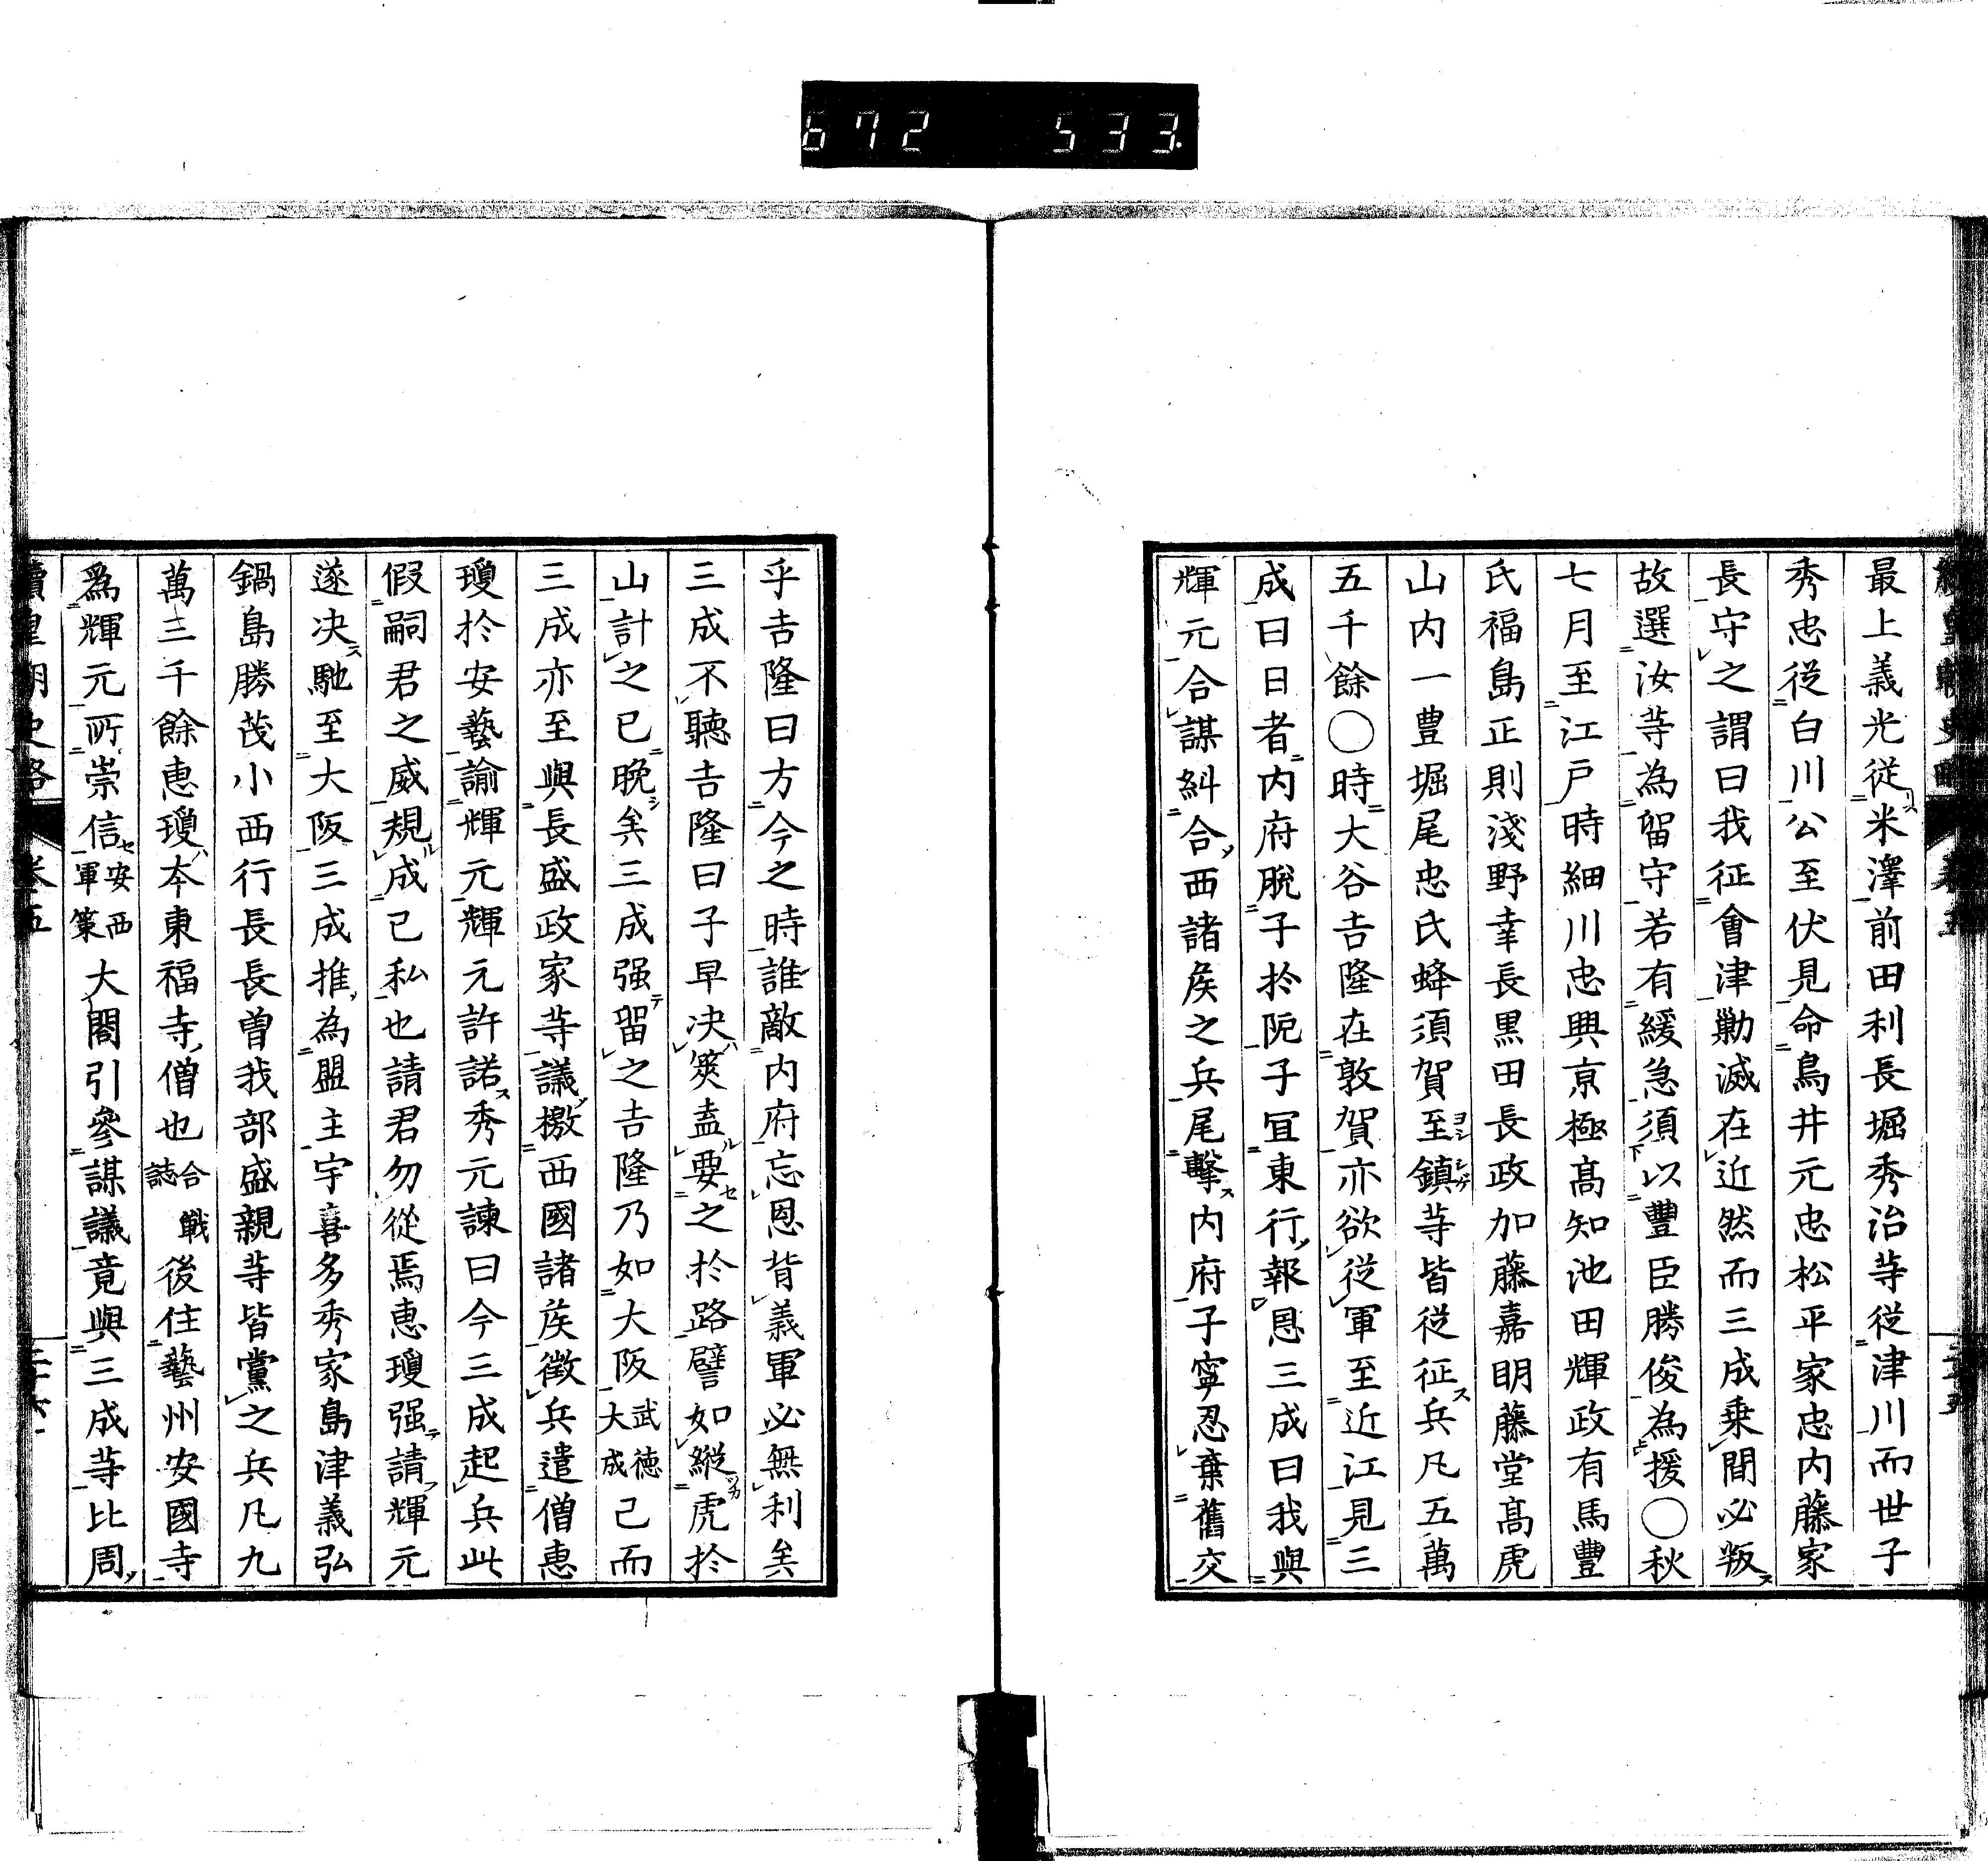 672 533.
最上義光從米澤前田利長堀秀治等從津川而世子
秀忠從白川公至伏見命鳥井元忠松平家忠内藤家
長守之謂曰我征會津勦滅在近然而三成乗間必叛
故選汝等為畱守若有緩急須以豐臣勝俊為援〇秋
七月至江戸時細川忠興京極髙知池田輝政有馬豐
氏福島正則淺野幸長黒田長政加藤嘉明藤堂髙虎
山内一豊堀尾忠氏蜂須賀至鎮等皆從征兵凡五萬
五千餘〇時大谷吉隆在敦賀亦欲從軍至近江見三
成曰日者内府脫子於阨子宜東行報恩三成曰我與
輝元合謀糾合西諸矦之兵尾擊内府子寧忍棄舊交
乎吉隆曰方今之時誰敵内府忘恩背義軍必無利矣
三成不聽吉隆曰子早决筴盍要之於路譬如縱虎於
山計之已晩矣三成强畱之吉隆乃如大阪武德大成已而
三成亦至與長盛政家等議檄西國諸矦徴兵遣僧惠
瓊於安藝諭輝元輝元許諾秀元諫曰今三成起兵此
假嗣君之威規成己私也請君勿從焉惠瓊强請輝元
遂决馳至大阪三成推為盟主宇喜多秀家島津義弘
鍋島勝茂小西行長長曽我部盛親等皆黨之兵凡九
萬三千餘恵瓊本東福寺僧也合戰誌後住藝州安國寺
爲輝元所崇信安西軍策大閤引參謀議竟與三成等比周
續皇朝史略 卷五